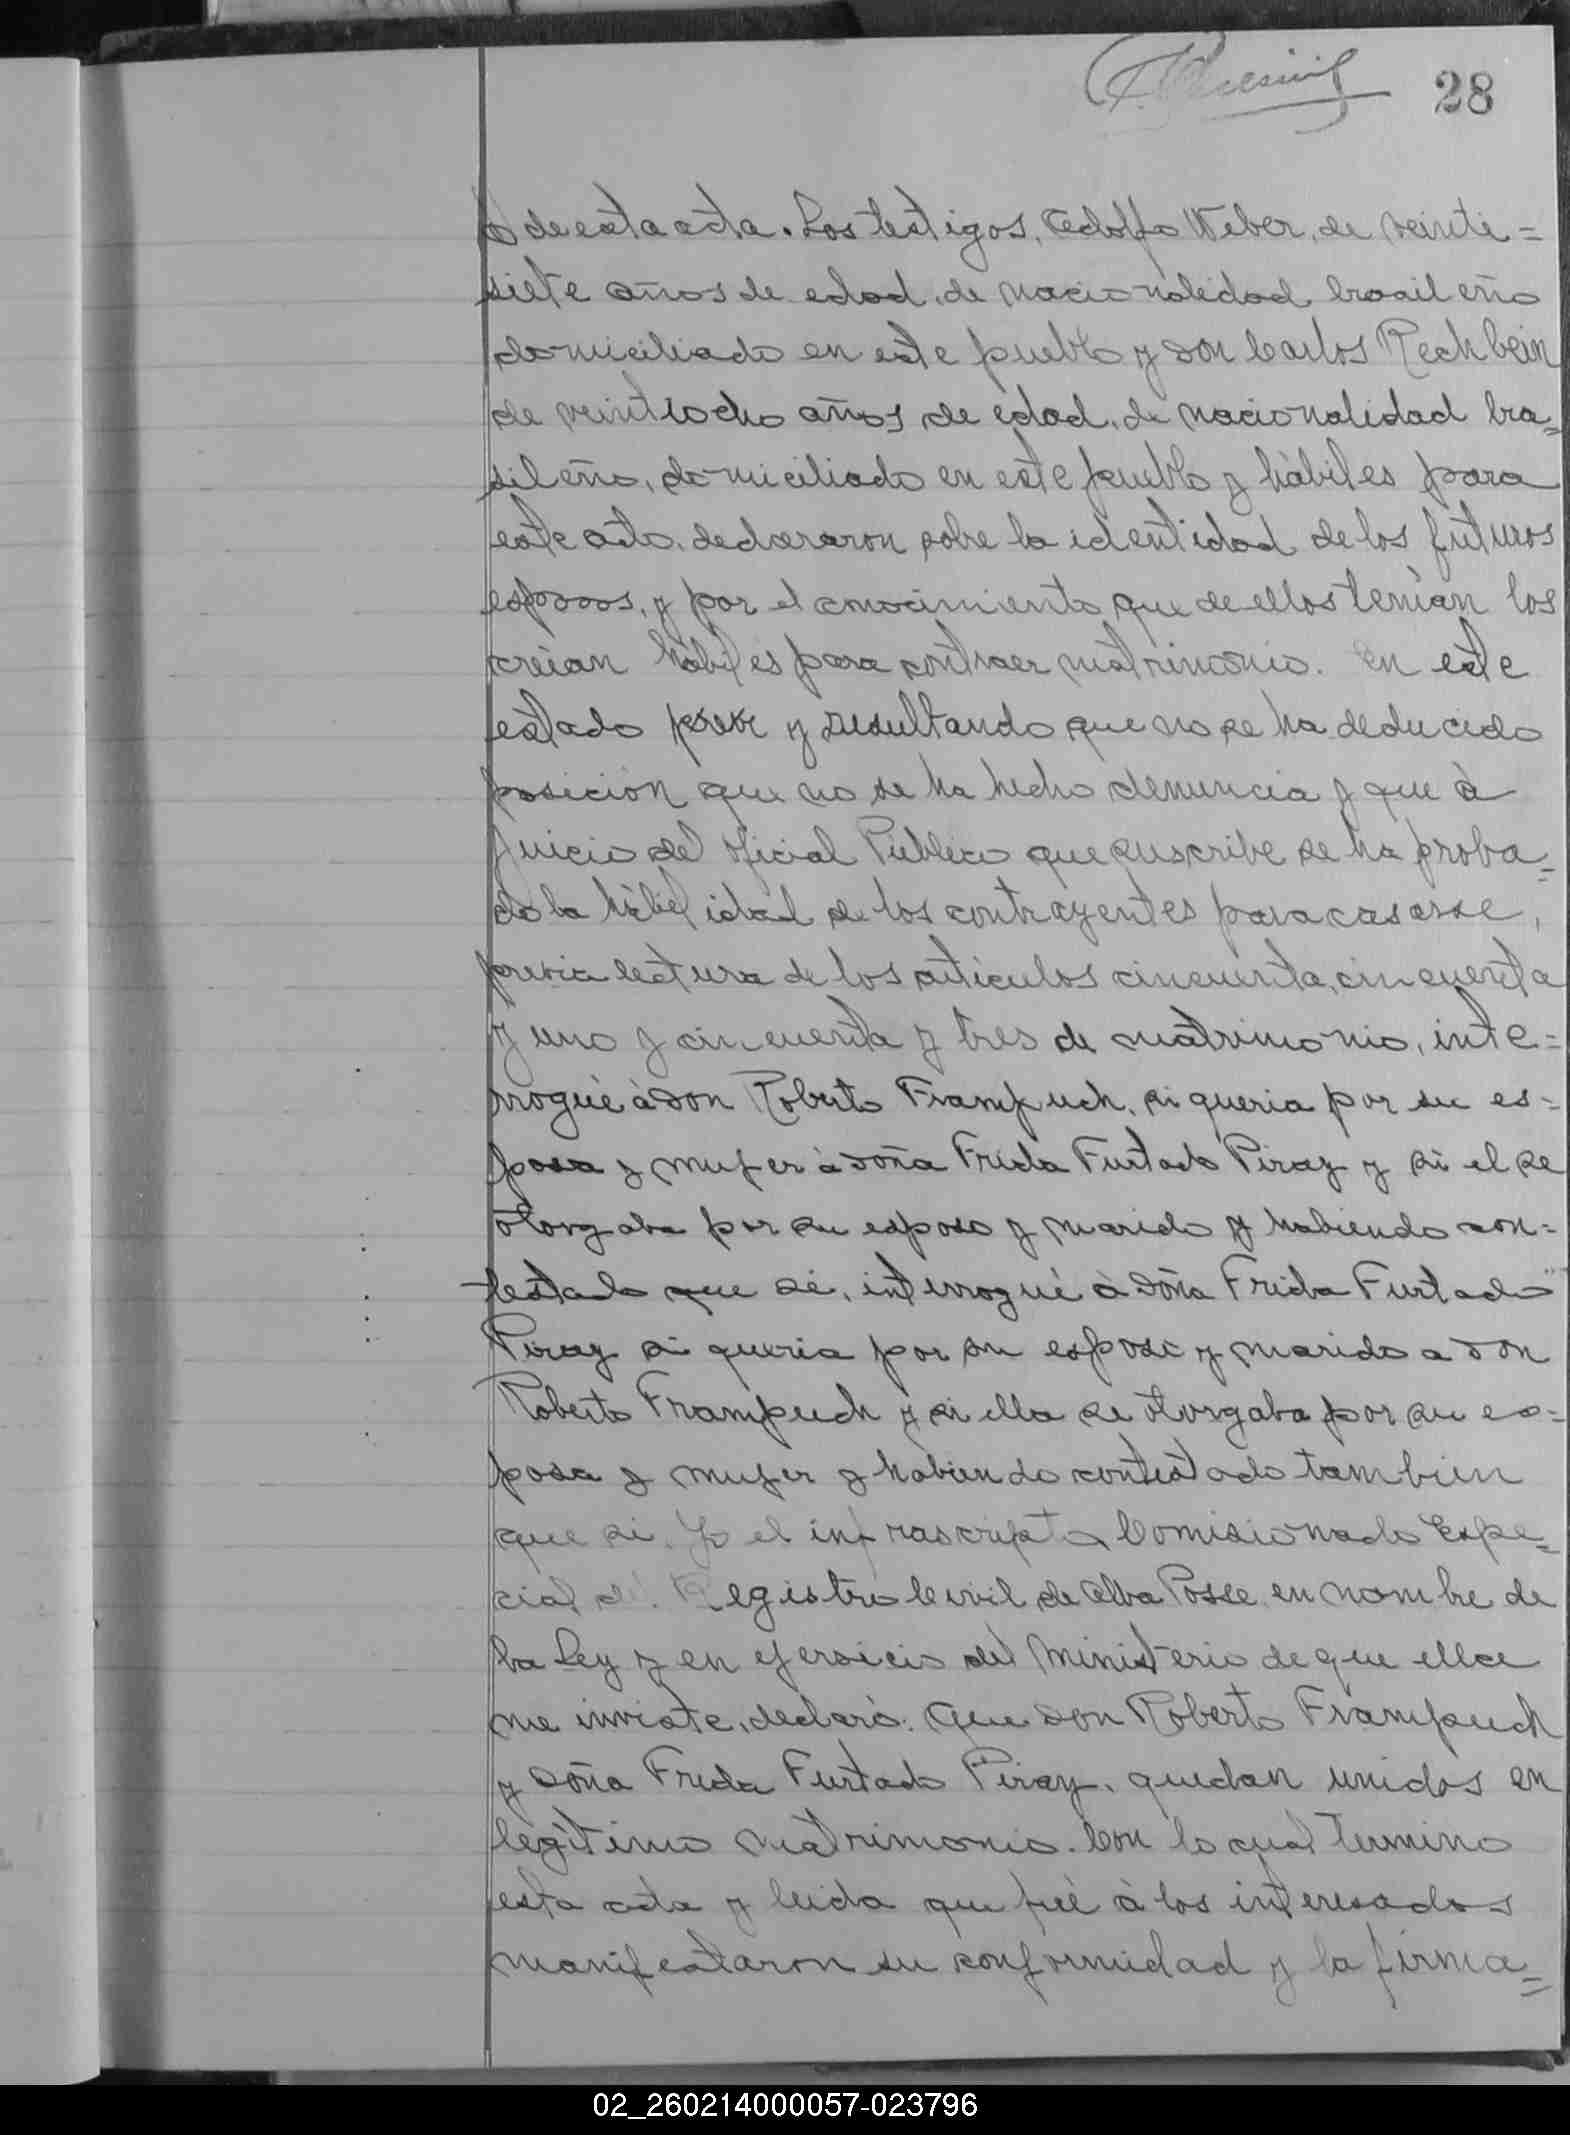 28
de esta acta. Los testigos, Adolfo Weber, de veinti=
siete años de edad, de nacionalidad brasileño
domiciliado en este pueblo y don Carlos Rechbein
de veintiocho años de edad, de nacionalidad bra=
sileño, domiciliado en este pueblo y hàbiles para
este acto, declararon sobre la identidad de los futuros
esposos, y por el conocimiento que de ellos tenìan los
creìan hàbiles para contraer matrimonio. En este
estado y resultando que no se ha deducido
posiciòn que no se ha hecho denuncia y que à
juicio del oficial Pùblico que suscribe se ha proba=
do la hàbilidad de los contrayentes para casarse,
previa lectura de los artìculos cincuenta, cincuenta
y uno y cincuenta y tres de matrimonio, inte=
rroguè à don Roberto Frampuch, si queria por su es=
posa y mujer à doña Frida Furtado Piray y si el se
otorgaba por su esposo y marido y habiendo con=
testado que si, interroguè à doña Frida Furtado
Piray si queria por su esposo y marido a don
Roberto Frampuch y si ella se otorgaba por su es=
posa y mujer y habiendo contestado tambien
que si. Yo el infrascripto Comisionado Espe=
cial del Registro Civil de Alba Posse en nombre de
la Ley y en ejersicio del ministerio de que ella
me inviste, declaro: Que don Roberto Frampuch
y doña Frida Furtado Piray, quedan unidos en
legìtimo matrimonio. Con lo cual termino
esta acta y leida que fuè à los interesados
manifestaron su conformidad y la firma=
02_260214000057-023796